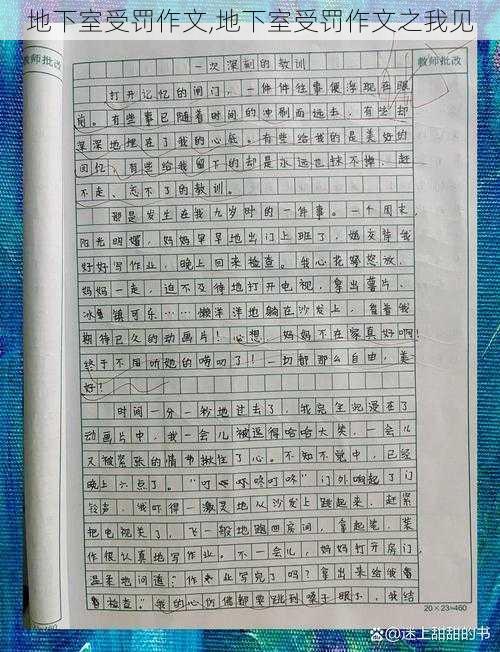 地下室受罚作文,地下室受罚作文之我见
教师批改
教师批改
一次深刻的教训
打开记忆的闸门，一件件往事便浮现在眼
前。有些事已随着时间的冲刷而远去，有些却
深深地埋在了我的心底。有些给我的是美好的
回忆，有些给我留下的却是永远也抹不掉、赶
不走、忘不了的教训。
那是发生在我九岁时的一件事。一个周末，
阳光明媚，妈妈早早地出门上班了，她交待我
好好写作业，晚上回来检查。我心花怒放，
妈妈一走，迫不及待地打开电视，拿出薯片、
冰镇可乐……懒洋洋地躺在沙发上，看着我
期待已久的动画片！心想，妈妈不在家真好啊！
终于不用听她的唠叨了！一切都那么自由，美
好！
时间一分一秒地过去了，我完全沉浸在了
动画片中，我一会儿被逗得哈哈大笑，一会儿
又被紧张的情节揪住了心。不知不觉中，已经
晚上六点了。“叮咚叮咚”门外响起了门
铃声，我吓得一激灵地从沙发上跳起来，赶紧
把电视关了，飞一般地跑回房间，拿起笔，装
作很认真地写作业。不一会儿，妈妈打开房门，
温柔地问道：“作业写完了吗？拿出来给我看
看检查。”我的心仿佛都要跳到嗓子眼了，我结
20×23=460
@迷上甜甜的书